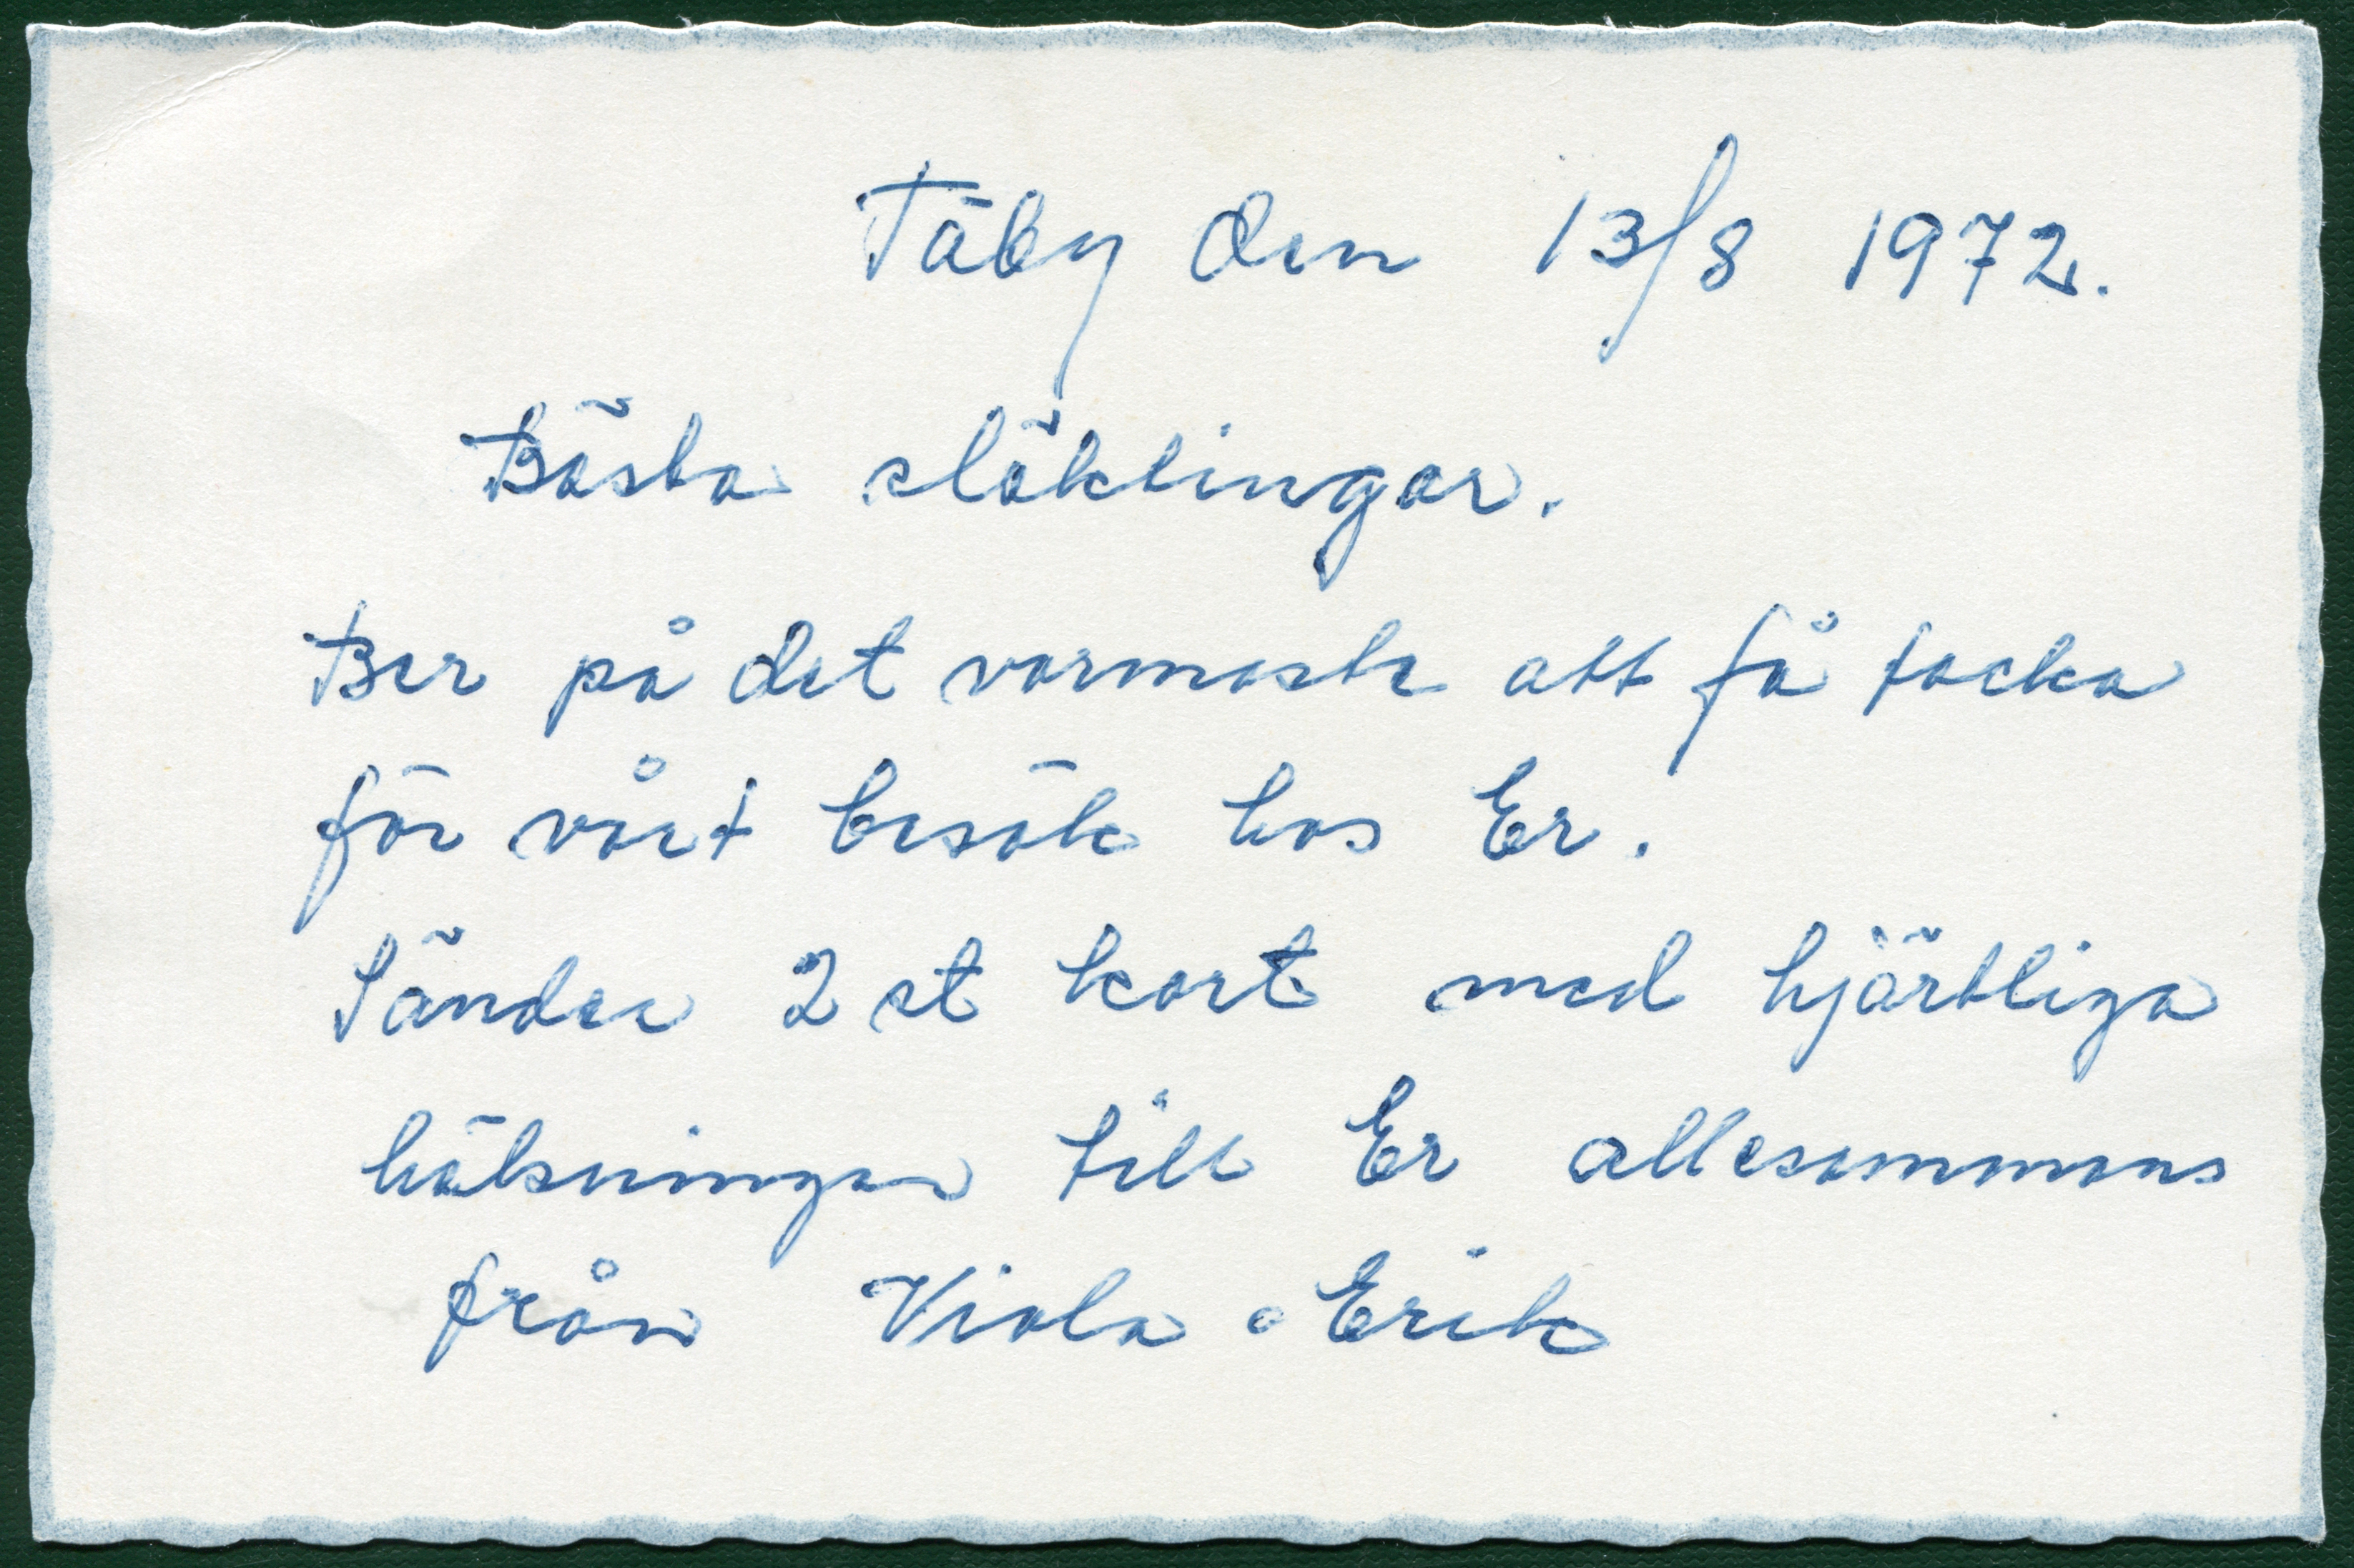 Täby den 13/8 1972.
Bästa släktingar.
Ber på det varmaste att få tacka
för vårt besök hos Er.
Sänder 2 st kort med hjärtliga
hälsningar till Er allesammans
från Viola o Erik